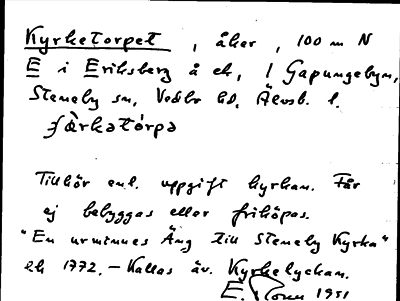 Kyrketorpet, åker, 100 m N
E i Eriksberg å ek, 1 Gapungebyn,
Steneby sn, Vedbo hd, Älvsb. l.
Tillhör enl. uppgift kyrkan. Får
ej bebyggas eller friköpas.
"En urminnes Äng till Steneby Kyrka"
ek 1772. - Kallas äv. Kyrkelyckan.
E. 1951